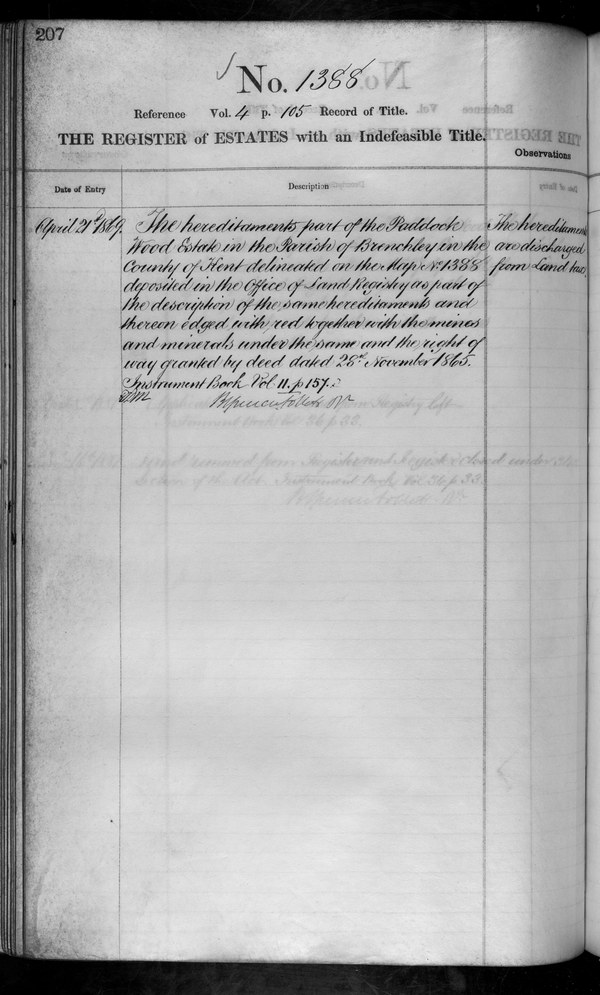 207
No. 1388
Reference Vol. 4 p. 105 Record of Title.
THE REGISTER of ESTATES with an Indefeasible Title.
Observations
Date of Entry
Description
April 21st 1869.
The hereditaments part of the Paddock
Wood Estate in the Parish of Brenchley in the
County of Kent delineated on the Map No 1388
deposited in the Office of Land Registry as part of
the description of the same hereditaments and
thereon edged with red together with the mines
and minerals under the same and the right of
way granted by deed dated 28th November 1865.
Instrument Book Vol 11. p 157.
The hereditaments
are discharged
from Land tax